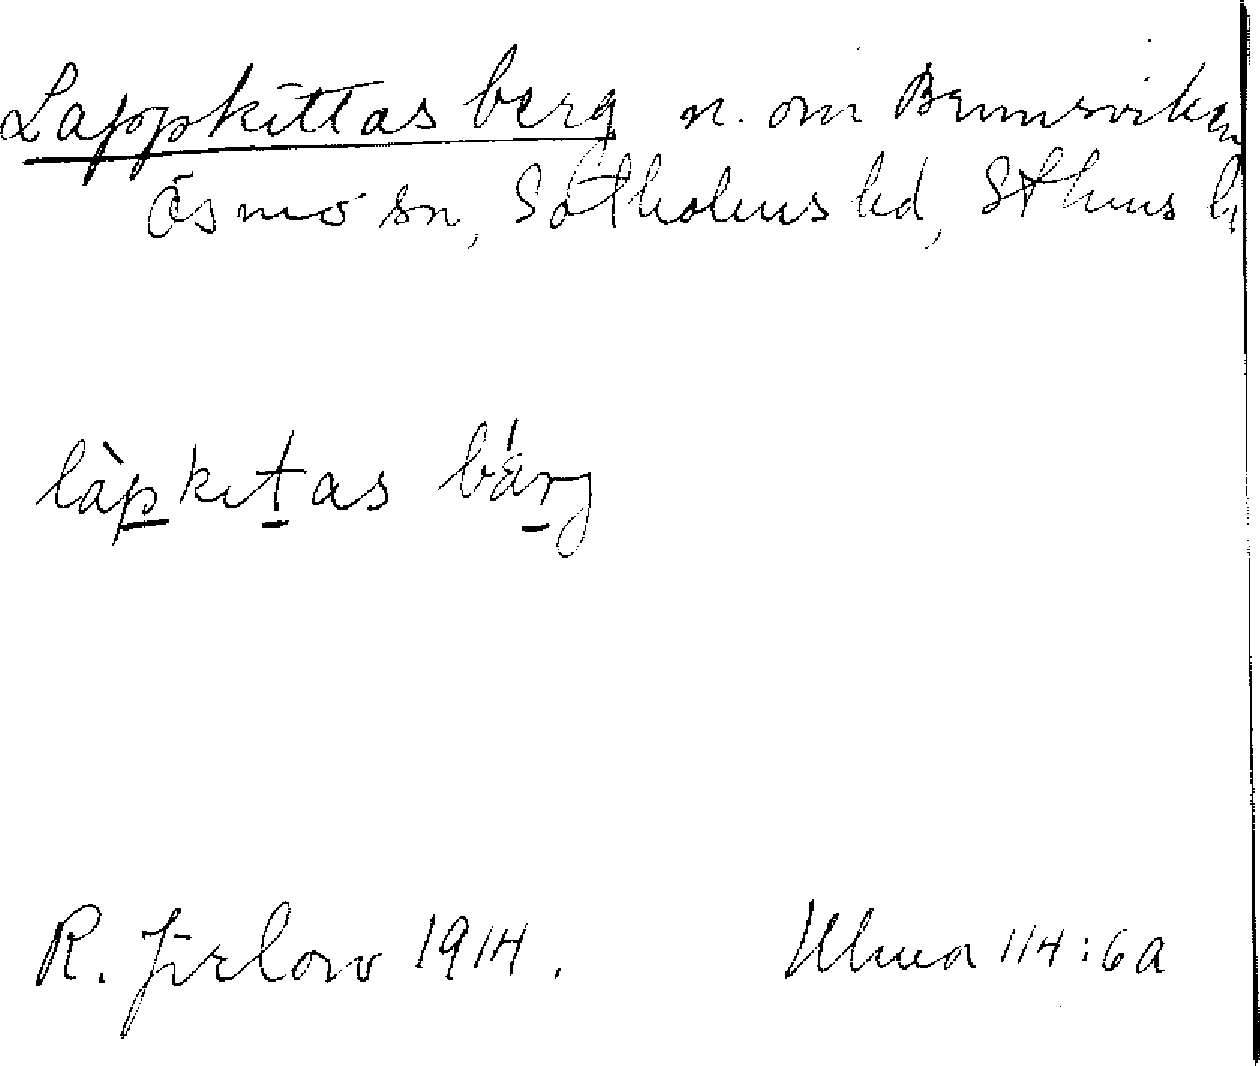 Lappkittas berg n. om Brunnsviken
Ösmo sn, Sotholms hd, Sthms l.
làpkitas bárj
R. Jirlow 1914.
114:6a